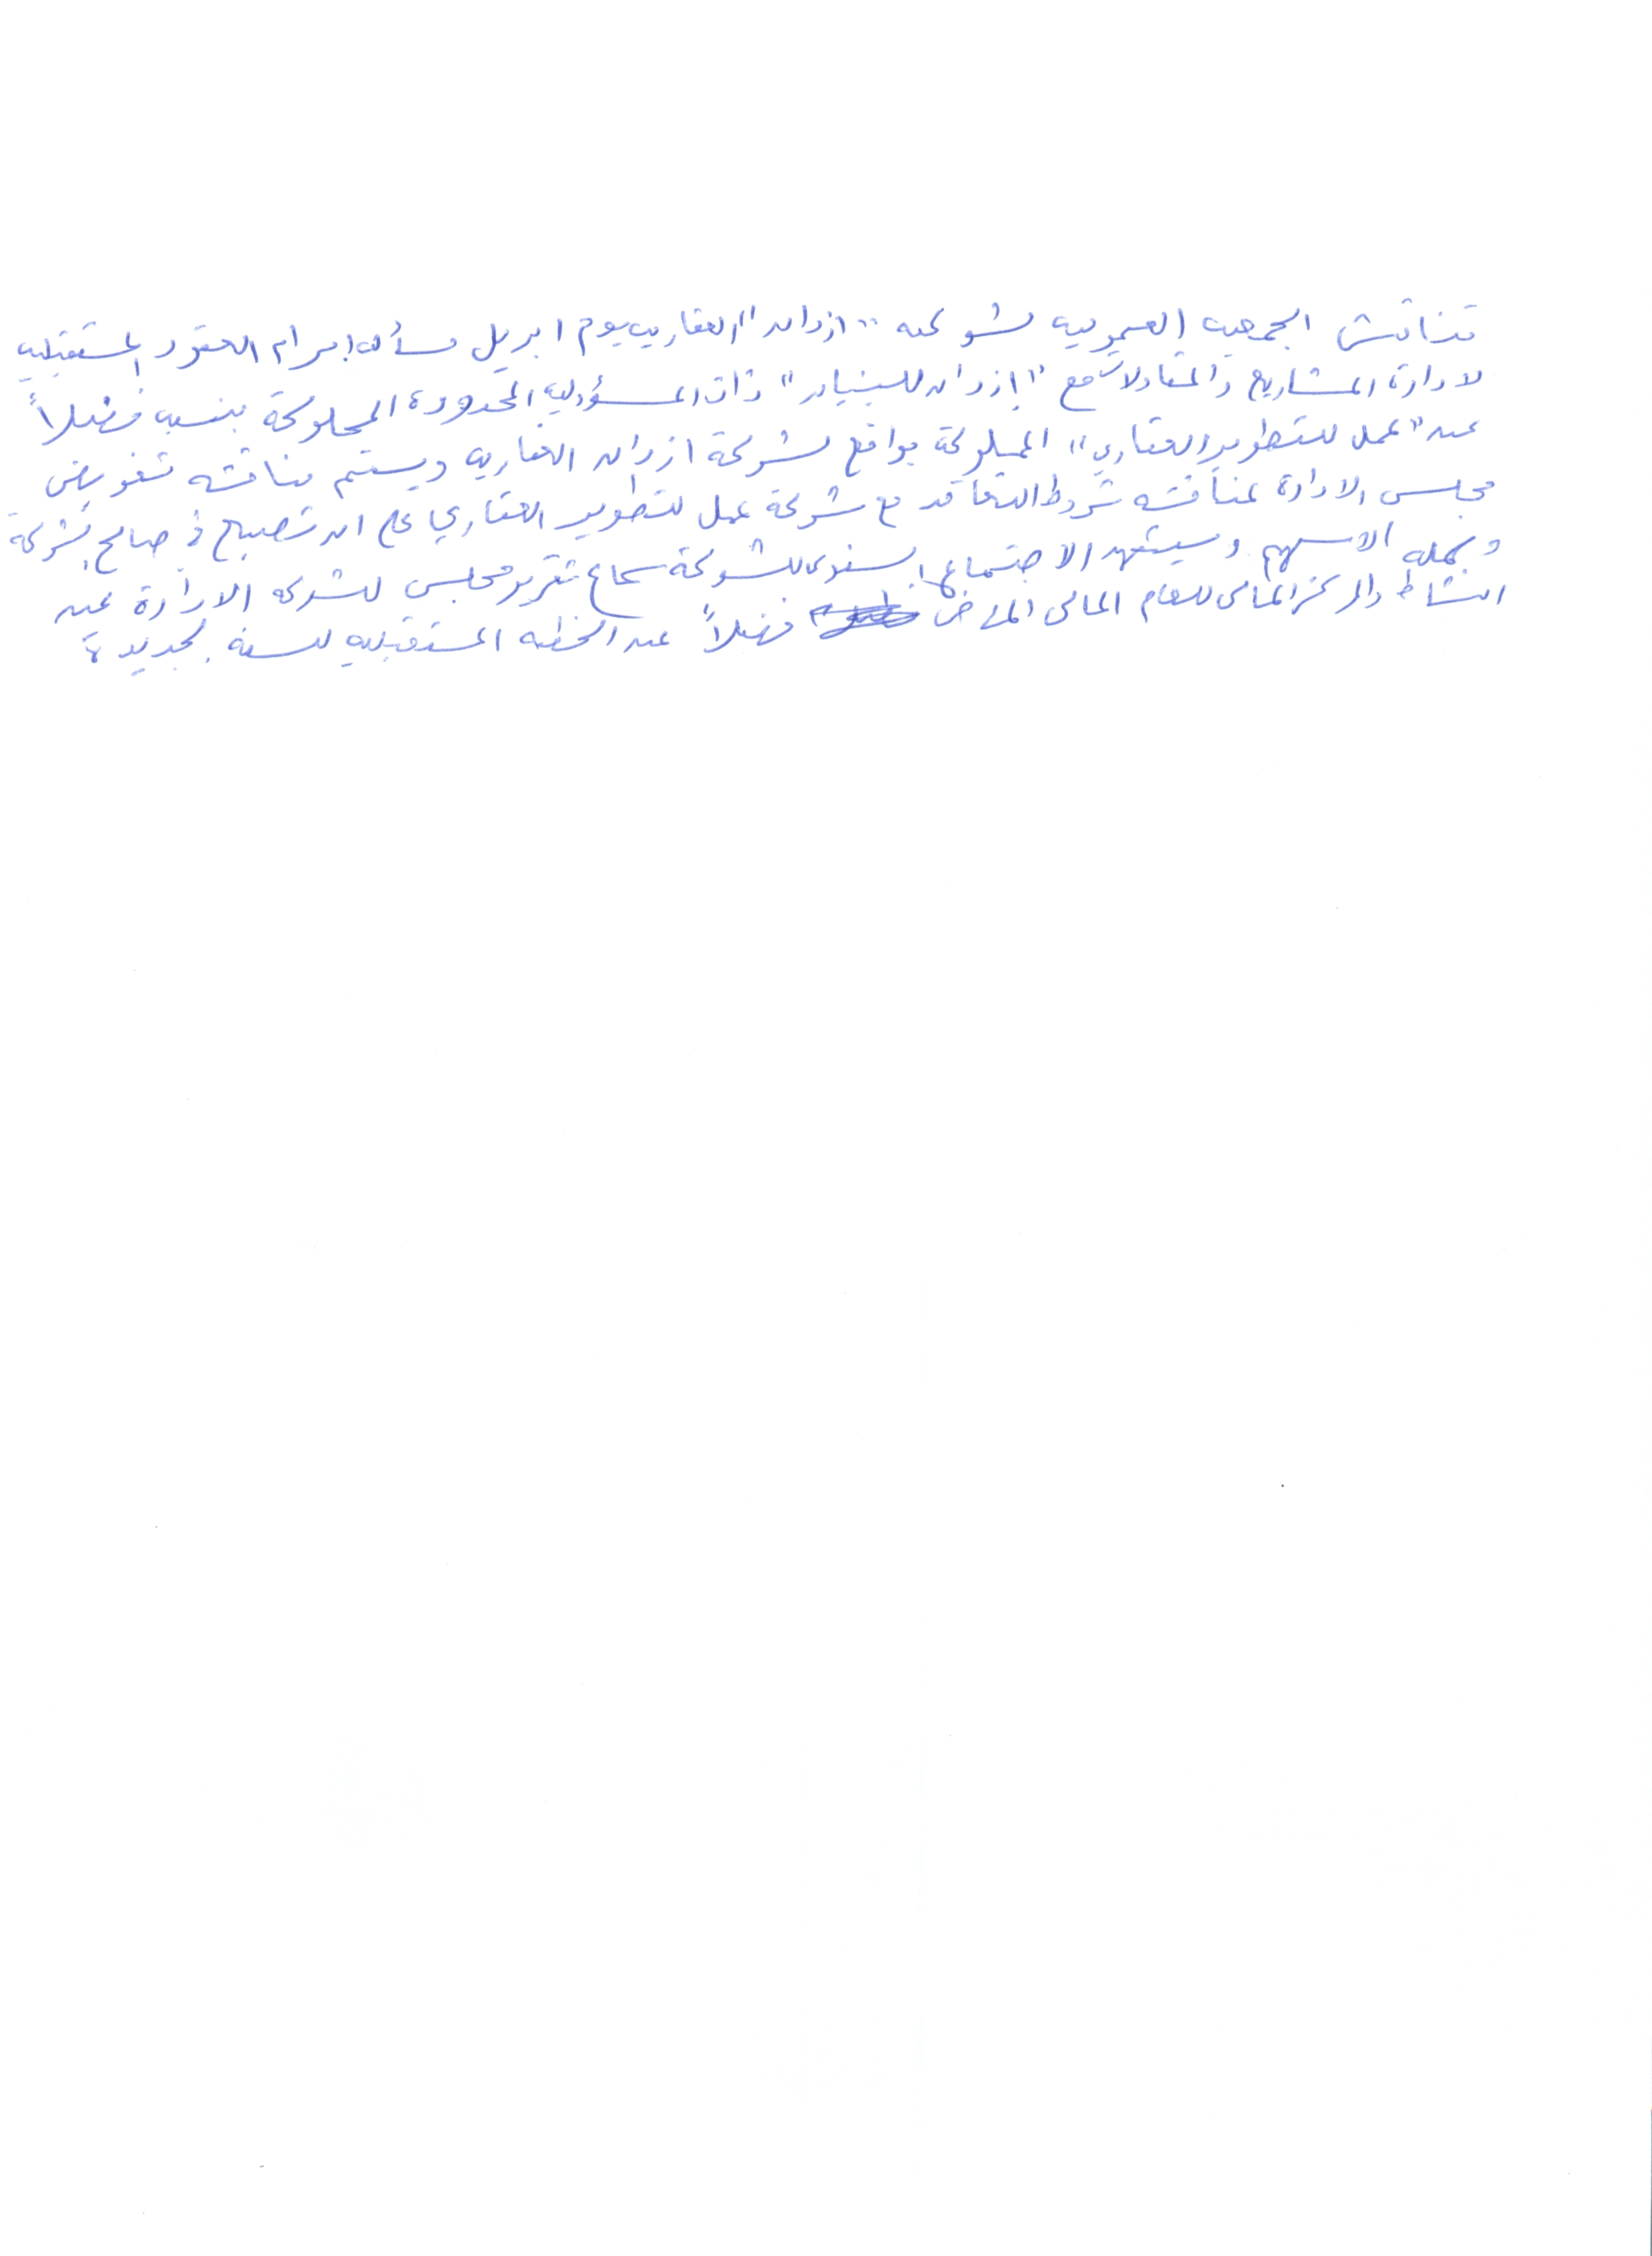 تناقش الجمعية العمومية لشركة "ازدان" العقارية يوم ابريل مسألة ابرام العقود المستقبلية
لادارة المشاريع والمقاولات مع "ازدان للبنيان" ذات المسؤولية المحدودة المملوكة بنسبه فضلاً
عن "عمل للتطوير العقاري" المملوكة بواقع لشركة ازدان العقارية ويستم مناقشه تفويض
مجلس الادارة لمناقشه شروط التعاقد مع شركة عمل للتطوير العقاري على ان تصبح في صالح الشركة
وحمله الاسهم وسيشهد الاجتماع السنوى للشركة سماع تقرير مجلس للشركه الادارة عن
النشاط والمركز المالى للعام المالى الماضى فضلاً عن الخطه المستقبليه للسنه الجديدة